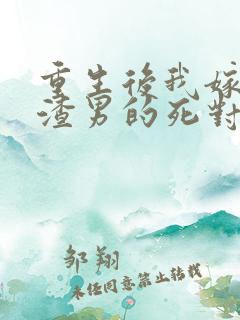 重生後我嫁
渣男的死對
邹翔
未经同意禁止转载